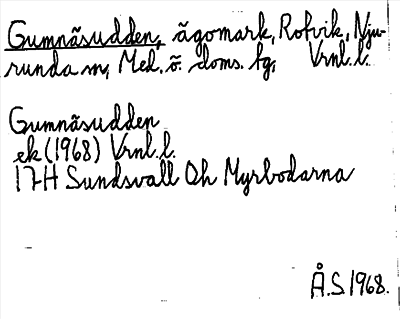 Gumnäsudden, ägomark, Rofvik, Nju-
runda sn, Med. ö. doms. fg, Vrnl. l.
Gumnäsudden
ek (1968) Vrnl. l.
17H Sundsvall Oh Myrbodarna
Å.S. 1968.